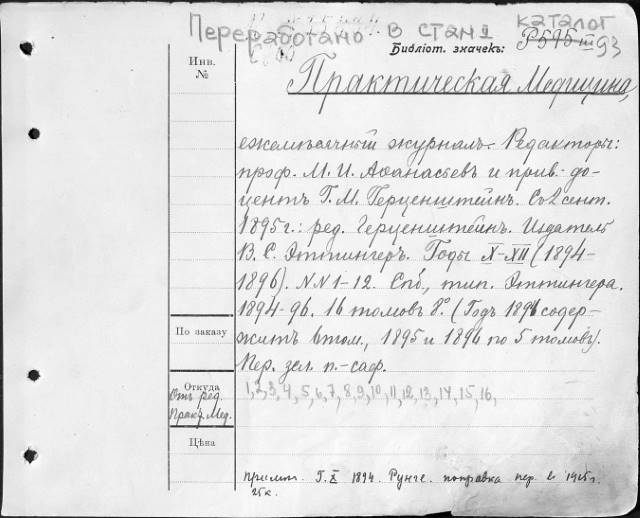 Переработано в стан. каталог
Библіот. значекъ: Р595 III 93
Инв. №
Практическая Медицина,
ежемѣсячный журналъ. Редакторы:
проф. М. И. Аѳанасьевъ и прив.-до-
центъ Г. М. Герценштейнъ. Со 2 сент.
1895 г.: ред. Герценштейнъ. Издатель
В. С. Эттингеръ. Годы X-XII (1894-
1896). NN 1-12. Спб., тип. Эттингера.
1894-96. 16 томовъ 8º. (Годъ 1894 содер-
житъ 6 том., 1895 и 1896 по 5 томовъ).
По заказу
Пер. зел. п.-саф.
Откуда
Отъ ред. Практ. Мед.
1, 2, 3, 4, 5, 6, 7, 8, 9, 10, 11, 12, 13, 14, 15, 16,
Цѣна
Г. X 1894. Рунге. поправка пер. в 1925 г.
25 к.